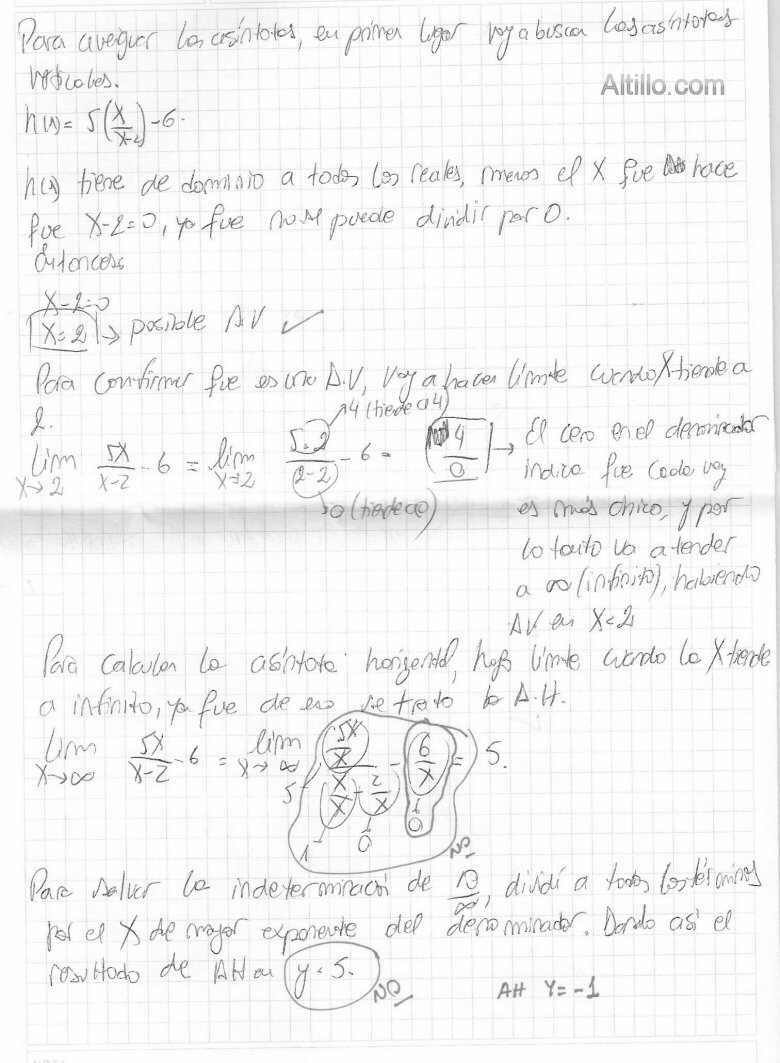 Para averiguar las asíntotas, en primer lugar voy a buscar las asíntotas
Altillo.com
verticales.
h(x) = 5(x/x-2) - 6.
h(x) tiene de dominio a todos los reales, menos el X que hace
que X-2=0, ya que no se puede dividir por 0.
Entonces
X-2=0
X=2 → posible A.V ✓
Para confirmar que es una A.V, voy a hacer límite cuando X tiende a
2.
4 (tiende a 4)
lim x→2 5x/x-2 - 6 = lim x→2 5.2/(2-2) - 6 = 4/0 → El cero en el denominador
indica que cada vez
0 (tiende a 0)
es más chico, y por
lo tanto va a tender
a ∞ (infinito), habiendo
AV en X=2
Para calcular la asíntota horizontal, hago límite cuando la X tiende
a infinito, ya que de eso se trata la A.H.
lim x→∞ 5x/x-2 - 6 = lim x→∞ 5x/x / x/x - 2/x - 6/x = 5.
5
1 0 0
NO
Para salvar la indeterminación de ∞/∞, dividí a todos los términos
por el X de mayor exponente del denominador. Dando así el
resultado de AH en y = 5.
NO AH Y = -1